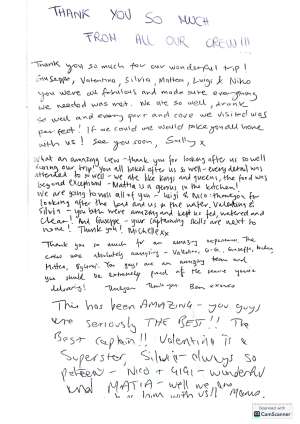 THANK YOU SO MUCH
FROM ALL OUR CREW!!!
Thank you so much for our wonderful trip!
Giuseppe, Valentina, Silvia, Mattea, Luigi & Niko
you were all fabulous and made sure everything
we needed was met. We ate so well, drank
so well and every port and cove we visited was
perfect! If we could we would take you all home
with us! See you soon, Sally x
What an amazing crew - thank you for looking after us so well
during our trip! You all looked after us so well - every detail was
attended to so well - we ate like kings and queens, the food was
beyond exceptional - Mattia is a genius in the kitchen!
We are going to miss all of you - Luigi & Nico thankyou for
looking after the land and us in the water. Valentina &
Silvia - you both were amazing and kept us fed, watered and
clean! And Giuseppe - your captaining skills are next to
none! Thank you! Michelle xx
Thank you so much for an amazing experience. The
crew are absolutely amazing - Valentina, Gigi, Giuseppe, Nicky
Mattea, Sylvia. You guys are an amazing team and
you should be extremely proud of the service you're
delivering! Thankyou Thankyou
This has been AMAZING - you guys
are seriously THE BEST!! The
Best captain!! Valentina is a
Superstar, Silvia - always so
- Nico + GIGI - wonderful
and MATIA - well we
him with us!!
CamScanner